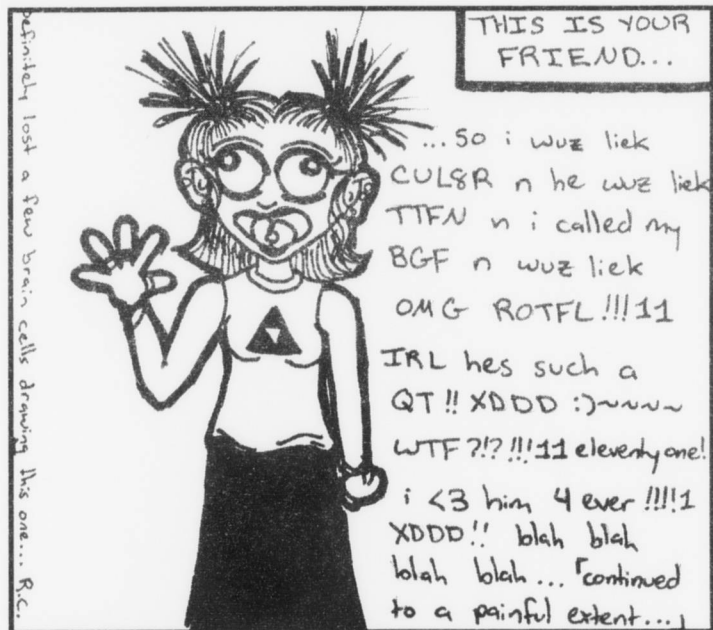 THIS IS YOUR
FRIEND...
...so i wuz liek
CUL8R n he wuz liek
TTFN n i called my
BGF n wuz liek
OMG ROTFL!!!11
IRL hes such a
QT!! XDDD :)~~~~
WTF?!?!!!11 eleventyone!
i <3 him 4 ever !!!!1
XDDD!! blah blah
blah blah... 「continued
to a painful extent...」
Definitely lost a few brain cells drawing this one... R.C.